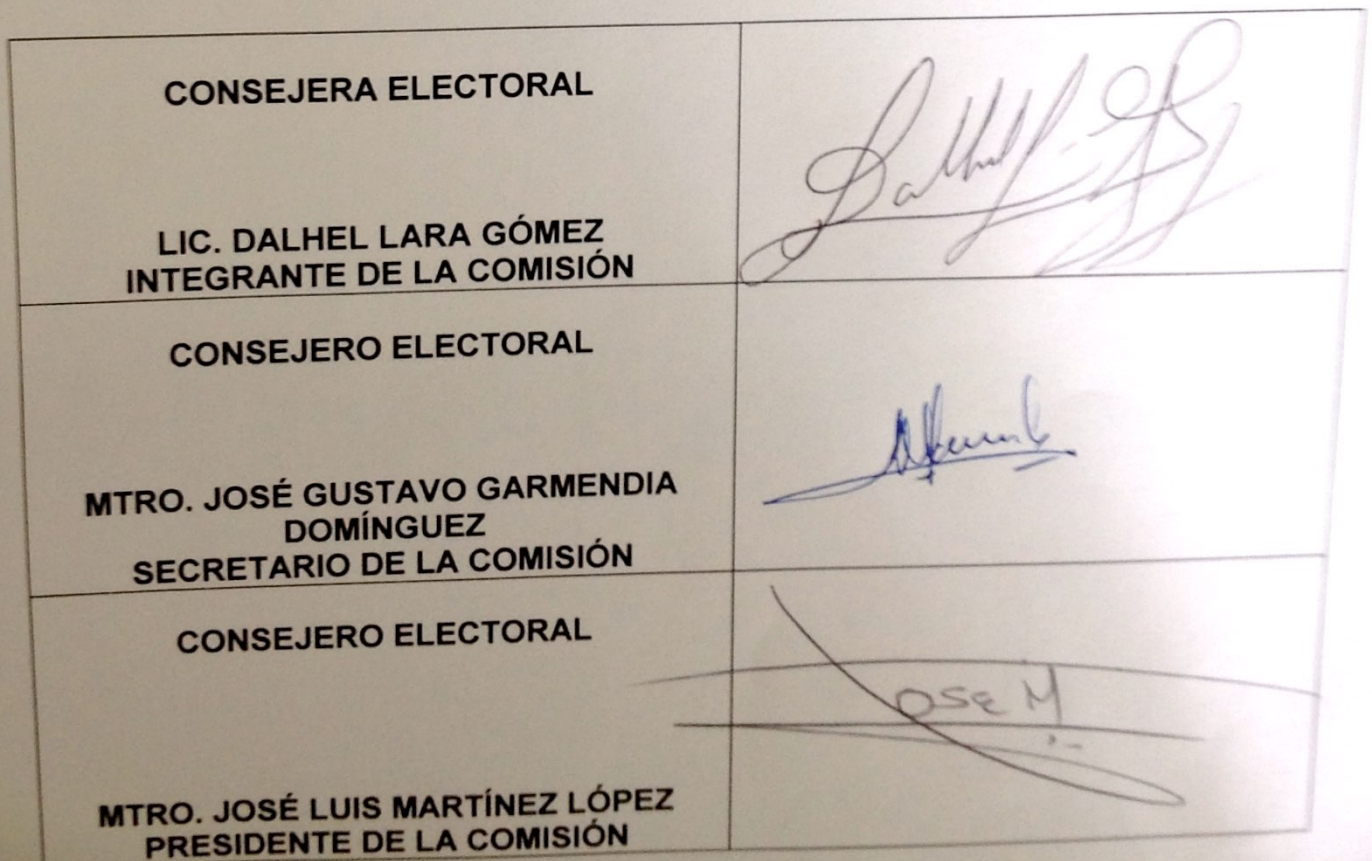 CONSEJERA ELECTORAL
LIC. DALHEL LARA GÓMEZ
INTEGRANTE DE LA COMISIÓN
CONSEJERO ELECTORAL
MTRO. JOSÉ GUSTAVO GARMENDIA
DOMÍNGUEZ
SECRETARIO DE LA COMISIÓN
CONSEJERO ELECTORAL
JOSE M
MTRO. JOSÉ LUIS MARTÍNEZ LÓPEZ
PRESIDENTE DE LA COMISIÓN